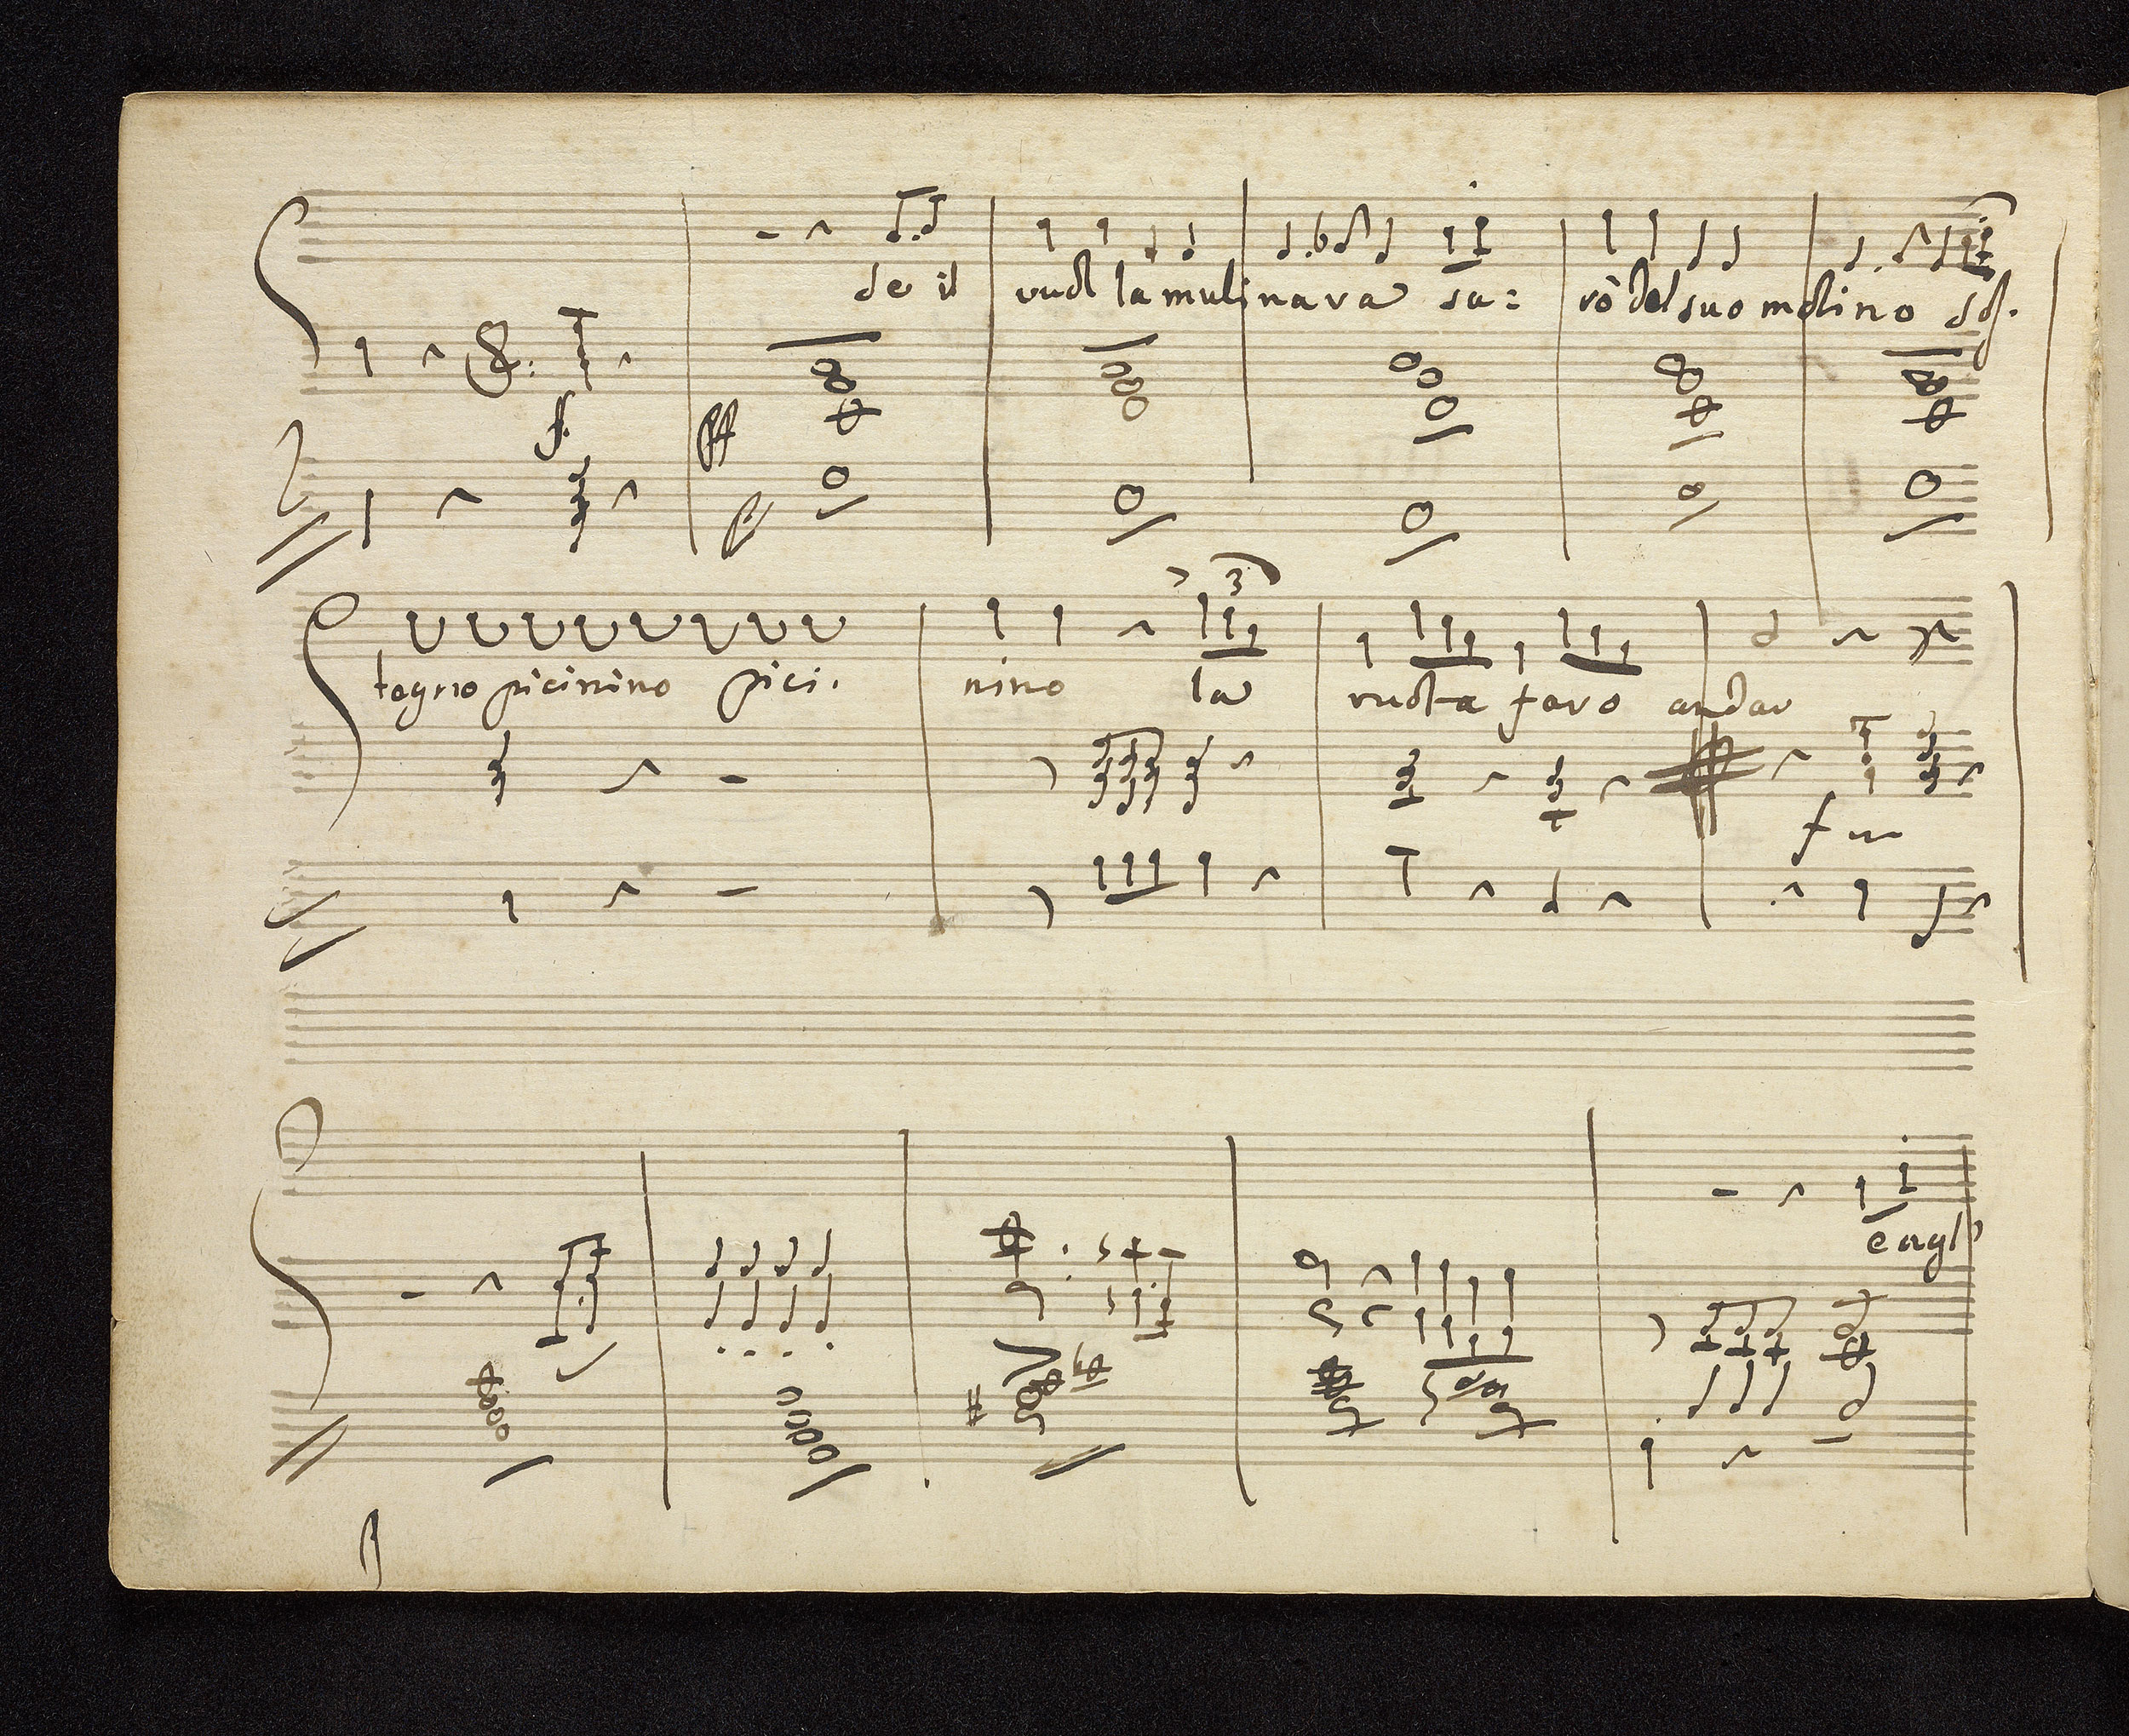 se il vuol la mulinara sa: rò del suo molino sos.
f. ff
3
tegno picinino pici. nino la ruota faro andar
f
e agl'